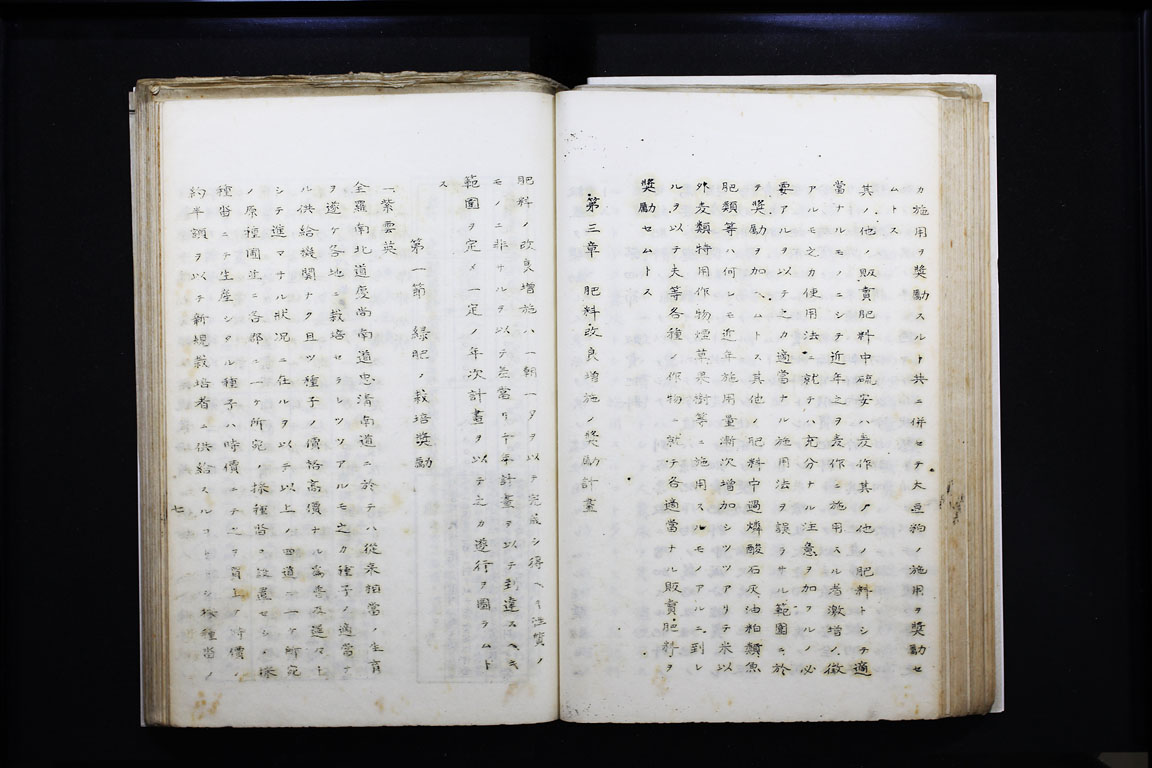 カ施用ヲ奬勵スルト共ニ併セテ大豆粕ノ施用ヲ奬勵セ
ムトス
其ノ他ノ販賣肥料中硫安ハ麦作其ノ他ノ肥料トシテ適
當ナルモノニシテ近年之ヲ麦作ニ施用スル者激増ノ徴
アルモ之カ使用法ニ就テハ充分ナル注意ヲ加フルノ必
要アルヲ以テ之カ適當ナル施用法ヲ誤ラサル範圍ニ於
テ奬勵ヲ加ヘムトス其他ノ肥料中過燐酸石灰油粕類魚
肥類等ハ何レモ近年施用量漸次増加シツツアリテ米以
外麦類特用作物煙草果樹等ニ施用スルモノアルニ到レ
ルヲ以テ夫等各種ノ作物ニ就テ各適當ナル販賣肥料ヲ
奬勵セムトス
第三章 肥料改良増施ノ奬勵計畫
肥料ノ改良増施ハ一朝一夕ヲ以テ完成シ得ヘキ性質ノ
モノニ非サルヲ以テ差當リ十年計畫ヲ以テ到達スヘキ
範圍ヲ定メ一定ノ年次計畫ヲ以テ之カ遂行ヲ圖ラムト
ス
第一節 緑肥ノ栽培奬勵
一紫雲英
全羅南北道慶尚南道忠清南道ニ於テハ從来相當ノ生育
ヲ遂ケ各地ニ栽培セラレツツアルモ之カ種子ノ適當ナ
ル供給機關ナク且ツ種子ノ價格高價ナル爲普及遅々ト
シテ進マサル状况ニ在ルヲ以テ以上ノ四道ニ一ケ所宛
ノ原種圃並ニ各郡ニ一ケ所宛ノ採種畓ヲ設置セシメ採
種畓ニテ生産シタル種子ハ時價ニテ之ヲ買上ケ時價ノ
約半額ヲ以テ新規栽培者ニ供給スルコトトシ採種畓ノ
七